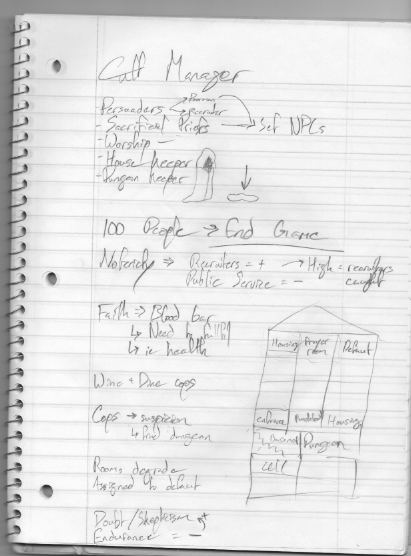 Cult Manager
Persuaders
Recruiter
- Sacrificial Priests → Set NPCs
- Worship -
- House keeper
- Dungeon keeper
100 People → End Game
Notoriety ⇒ Recruiters = + → High = recruiters
Public Service = - caught
Faith ⇒ Blood bar
↳ Need to fulfill
↳ ie health
Wine + Dine cops
Cops → suspicion
↳ find dungeon
Rooms degrade
Assigned to default
Doubt/Skepticism
Endurance = -
Housing Prayer room Default
entrance Housing
Dungeon
Cell